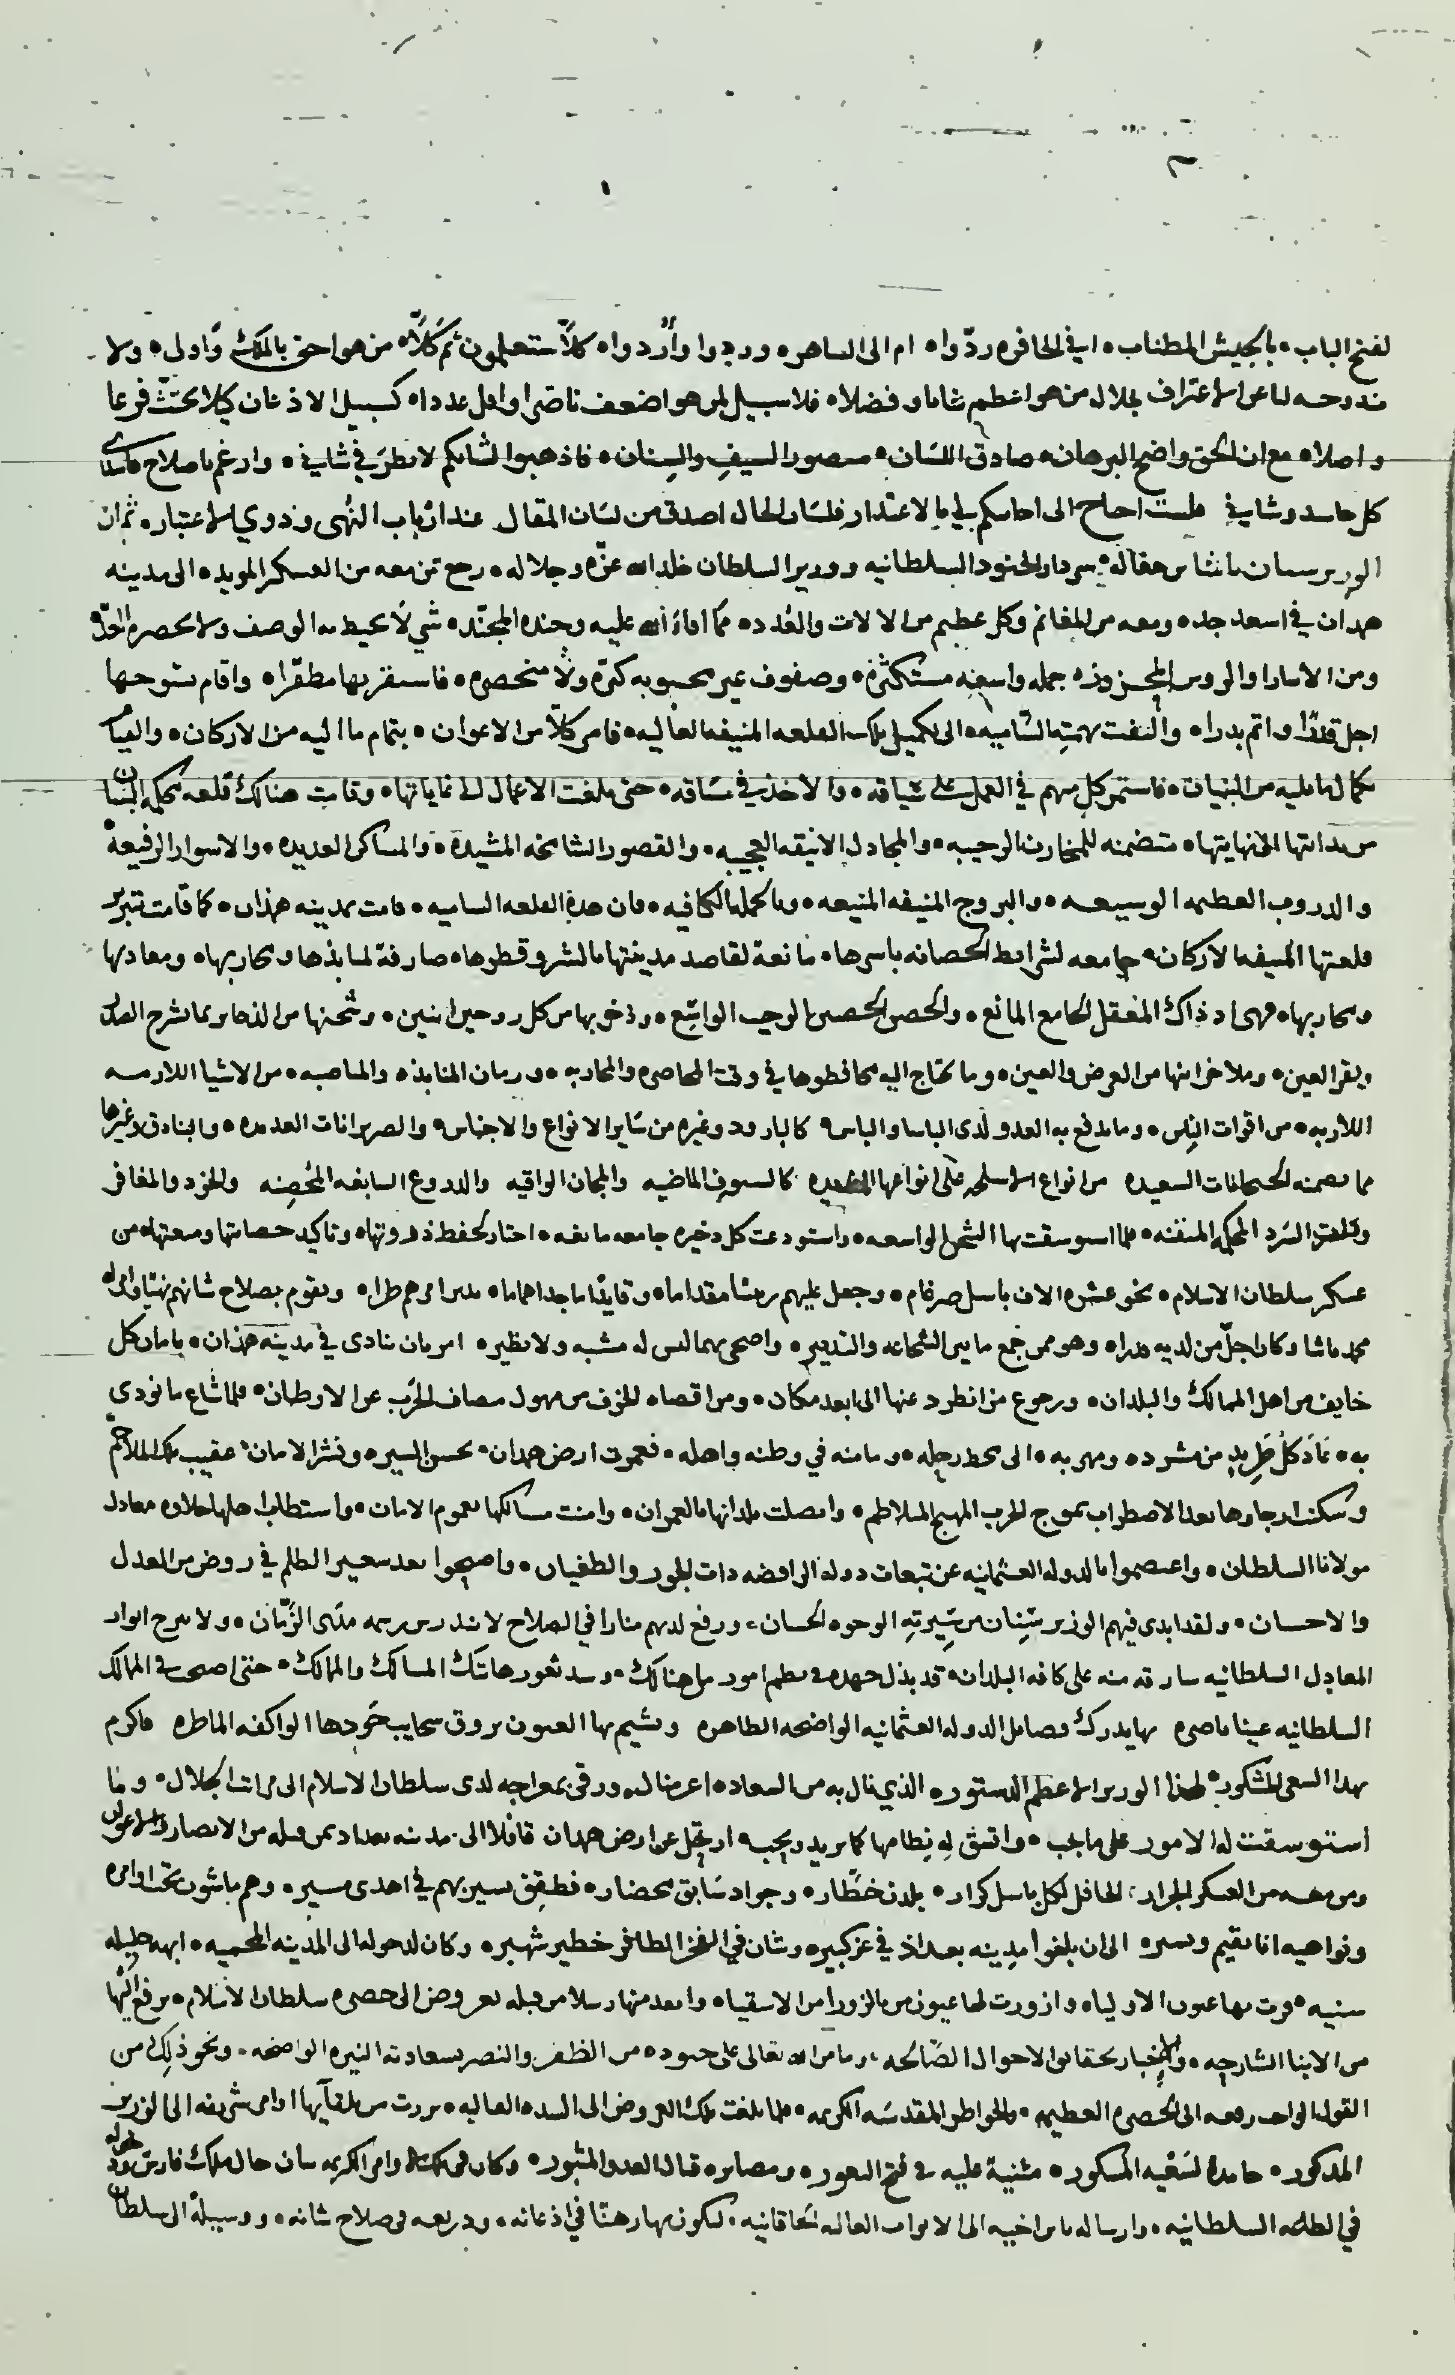 لفتح الباب ه بالجيش المطناب ه ايفى الحافره ردّوا ه ام الى الساهره وردوا وأُردوا ه كلّا ستعلمون ثم كلّا ه من هو احق بالملك وَاولى ه ولا
مندوحه لنا عن الاعتراف بجلال من هو اعظم شانا وفضلا ه فلا سبيل لمن هو اضعف ناصرا واقل عددا ه كسبيل الاذعان كيلا يجتثّ فرعا
واصلا ه مع ان الحق واضح البرهان ه صادق اللسَان ه منصور السيفِ والسِنان ه فاذهبوا لشانكم لا نظرَ في شاني ه وارغم باصلاح
كل حاسد وشاني فلست احتاح الى افامكم لي بالاعتذار فلسَان الحال اصدق من لسَان المقال عند ارْباب النُهى وذوي الاعتبار ه ثم ان
الوزير سنان باشا من مقاله سردار الجنود السلطانيه ووزير السلطان خلد الله عزّه وجلاله ه رجع بمن معه من العسكر المويده الى مدينه
همدان في اسعد جد ه ومعه من المغانم وكل عظيم من الالات والعُدد ه ممّا افاءَ الله عليه وجنده المجنّد ه شي لَا يحيط به الوصف ولا يحصره العدّ
ومن الاسارا والروس المجزوزه جمله واسعه مستكثره ه وصفوف غير محسوبه كثرة ولَا منحصره ه فاستقر بها مظفّرا ه واقام بتوجها
اجل قدرًا واتم بدرا ه والتفت بهمتِه السّاميه ه الى تكميل تلك القلعه المنيفه العاليه ه فامر كلاًّ من الاعوان ه بتمام ما اليه من الاركان ه والقيام
بكمال ما يليه من البنيان ه فاستمر كل منهم في العمل على سَياقه ه والاخذ في مسَاقه ه حتى بلغت الاعمال الى غاياتها ه وقامت هنالك قلعه محكمه البنيان
من بدايتها الى نهايتها ه متضمنه للمخازن الرحيبه ه والمجادل الانيقه العجيبه ه والقصور الشامخه المشيدة ه والمساكن العديده ه والاسوار الرفيعة
والدروب العظيمه الوسيعه ه والبروج المنيفه المنيعه ه وبالجمله الكافيه ه فان هذه القلعه الساميه ه قامت بمدينه همذان ه كما قامت تبريز
قلعتها المنيفه الاركان ه جامعه لشرايط الحصانه باسرها ه مانعة لقاصد مدينتها بالشر وقطرها ه صارفة لمنابذها ومحاربها ه ومعاديها
ومحاربها ه فهي اذ ذاك المعقل الجامع المانع ه والحصن الحصين الرحيب الواسِّع ه وذخر بها من كل زوجين اثنين ه وشحنها من الذخاير بما يشرح الصدر
ويقر العين ه وملا خزاينها من العرض والعين ه وما يحتاج اليه محافظوها في وقت المحاصره والمحاربه ه وزمان المنابذه والمناصبه ه من الاشيا اللازمه
اللازبه ه من اقوات الناس ه وما يدفع به العدو لدى الباسا والباس ه كالبارود وغيره من سَاير الانواع والاجناس ه والضربزانات العديده ه والبنادق وغيرها
مما يضمنه الجبخانات السعيده من انواع الاسلحه على انواعها العديده كالسيوف الماضيه والمجان الواقيه والدروع السابغه المُحصنه والخود والمغافر
السّرد المحكمه المتقنه ه فلما استوسقت بها الشحن الواسعه ه واستودعت كل ذخيره جامعه مانعه ه اختار لحفظ ذروتها ه وتاكيد حصانتها ومنعتها ه من
عسكر سلطان الاسلام ه نحو عشره الاف باسل ضرغام ه وجعل عليهم ريسًا مقداما ه وقايدًا ماجدا هماما ه يدبر امرهم طرا ه ويقوم بصلاح شانهم نهيًا وامرا ه
محمد باشا وكان اجلّ من لديه قدرا ه وهو ممن جمع ما بين الشجاعه والتدبير ه واضحى بهما ليس له مشبه ولا نظير ه امر بان نادى في مدينه همذان ه بامان كل
خايف من اهل الممالك والبلدان ه ورجوع من انطرد عنها الى ابعد مكان ه ومن اقصاه الخوف من مهول مصاف الحَرب عن الاوطان ه فلما شاع ما نودى
به ه عَادَ كل طَرِيدٍ من مشرده ومهربه ه الى محط رحله ه ومامنه في وطنه واهله ه فعمرت ارض همدان ه بحسن السيره ونشر الامان ه عقيب تلك الملاحم
وسكنت ارجاوها بعد الاضطراب بموج الحرب المهيج المتلاطم ه واتصلت بلدانها بالعمران ه وامنت مسالكها بعموم الامان ه واستطاب اهلها حلاوه معادل
مولانا السلطان ه واعتصموا بالدوله العثمانيه عن تبعات دوله الرافضه ذات الجور والطغيان ه واصبحوا بعد سعير الظلم في روض من العدل
والاحسان ه ولقد ابدى فيهم الوزير سِّنان من سِّيرتِه الوجوه الحسان ه ورفع لديهم منارا في الصلاح لا يندرس رسمه مدَى الزّمَان ه ولا تبرح انوار
المعادل السلطانيه سارقه منه على كافه البلدان ه قد بذل جهده في نظم امور من هنالك ه وسد ثغور هاتيك المسالك والممالك ه حتى اضحى في الممالك
السلطانيه عينا ناصره بها يدرك فضايل الدوله العثمانيه الواضحه الظاهره ويشيم بها العيون بروق سحايب جَودها الواكفه الماطره فاكرم
بهذا السعى المشكور لهذا الوزير الاعظم الدستور ه الذي نال به من السعاده اعز منال ه ورقى بمعراجه لدى سلطان الاسلام الى مراتب الجلال ه ولما
استوسقت له الامور على ما يجب ه واتسق له نظامها كما يريد ويحب ه ارتحل عن ارض همدان قافلا الى مدينه بغداد بمن قبله من الانصار والاعوان
ومن معه من العسكر الجرار ه الحافل لكل باسل كرار ه بلدن خطّار ه وجواد سَابق محضار ه فطفق يسير بهم في اهدى مسير ه وهم ماشون تحت اوامره
ونواهيه انا يقيم ويسير ه الى ان بلغوا مدينه بغداذ في عز كبير ه وشان في الفخر الظافر خطير شهير ه وكان لدخوله الى المدينه المحميه ه ابهه جليله
سنيه ه قرت بها عيون الاوليا ه وازورت لها عيون من بالزورا من الاشقيا ه وابعد منها رسلا من قبله بعروض الى حضره سلطان الاسلام ه برفع انها
من الابنا الشارحه ه والاخبار بحقايق الاحوال الصَالحه ه وما من الله تعالى على جنوده من الظفر والنصر بسعادته النيره الواضحه ه ونحو ذلك من
القول الواجب رفعه الى الحضره العظيمه ه والخواطر المقدسَه الكريمه ه فلما بلغت تلك العروض الى السده العاليه ه برزت من تلقآيها اوامر شريفه الى الوزير
المذكور ه حامدة لسَعْيه المشكور ه مثنية عليه في فتح الثغور ه ومصابره قتال العدو المثبور ه وكان في تلك الاوامر الكريمه بيان حال ملك فارس ودخوله
في الطاعه السلطانيه ه وارساله بابن اخيه الى الابواب العاليه الخاقانيه ه ليكون بها رهنًا في اذعانه ه وذريعه في صلاح شانه ه ووسيلةً الى سلطان